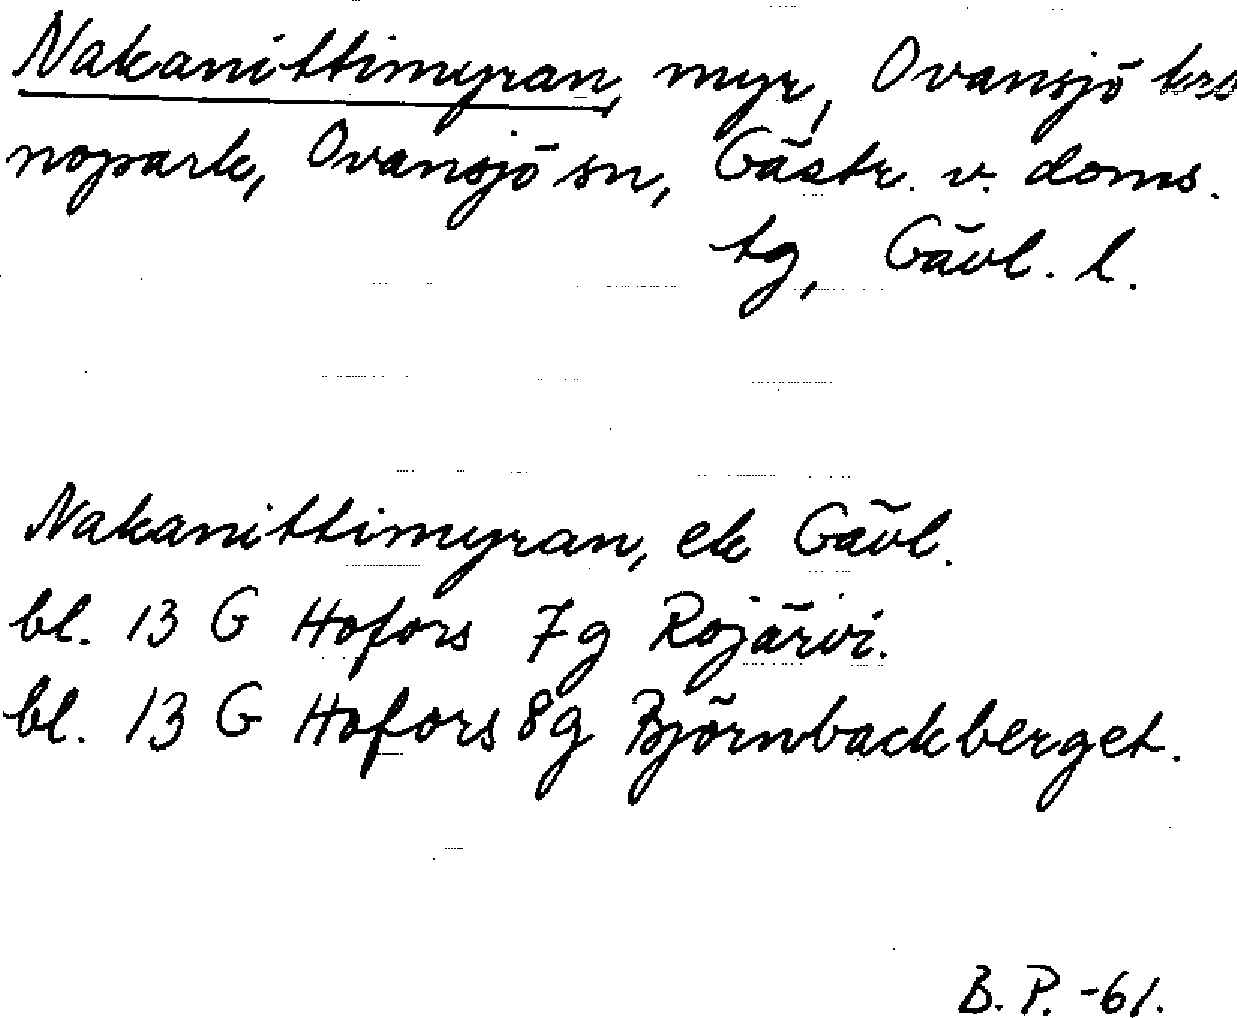 Nakanittimyran, myr, Ovansjö kro
nopark, Ovansjö sn, Gästr. v. doms.
tg, Gävl. l.
Nakanittimyran, ek Gävl.
bl. 13 G Hofors 7g Rojärvi.
bl. 13 G Hofors 8g Björnbackberget.
B. P. -61.